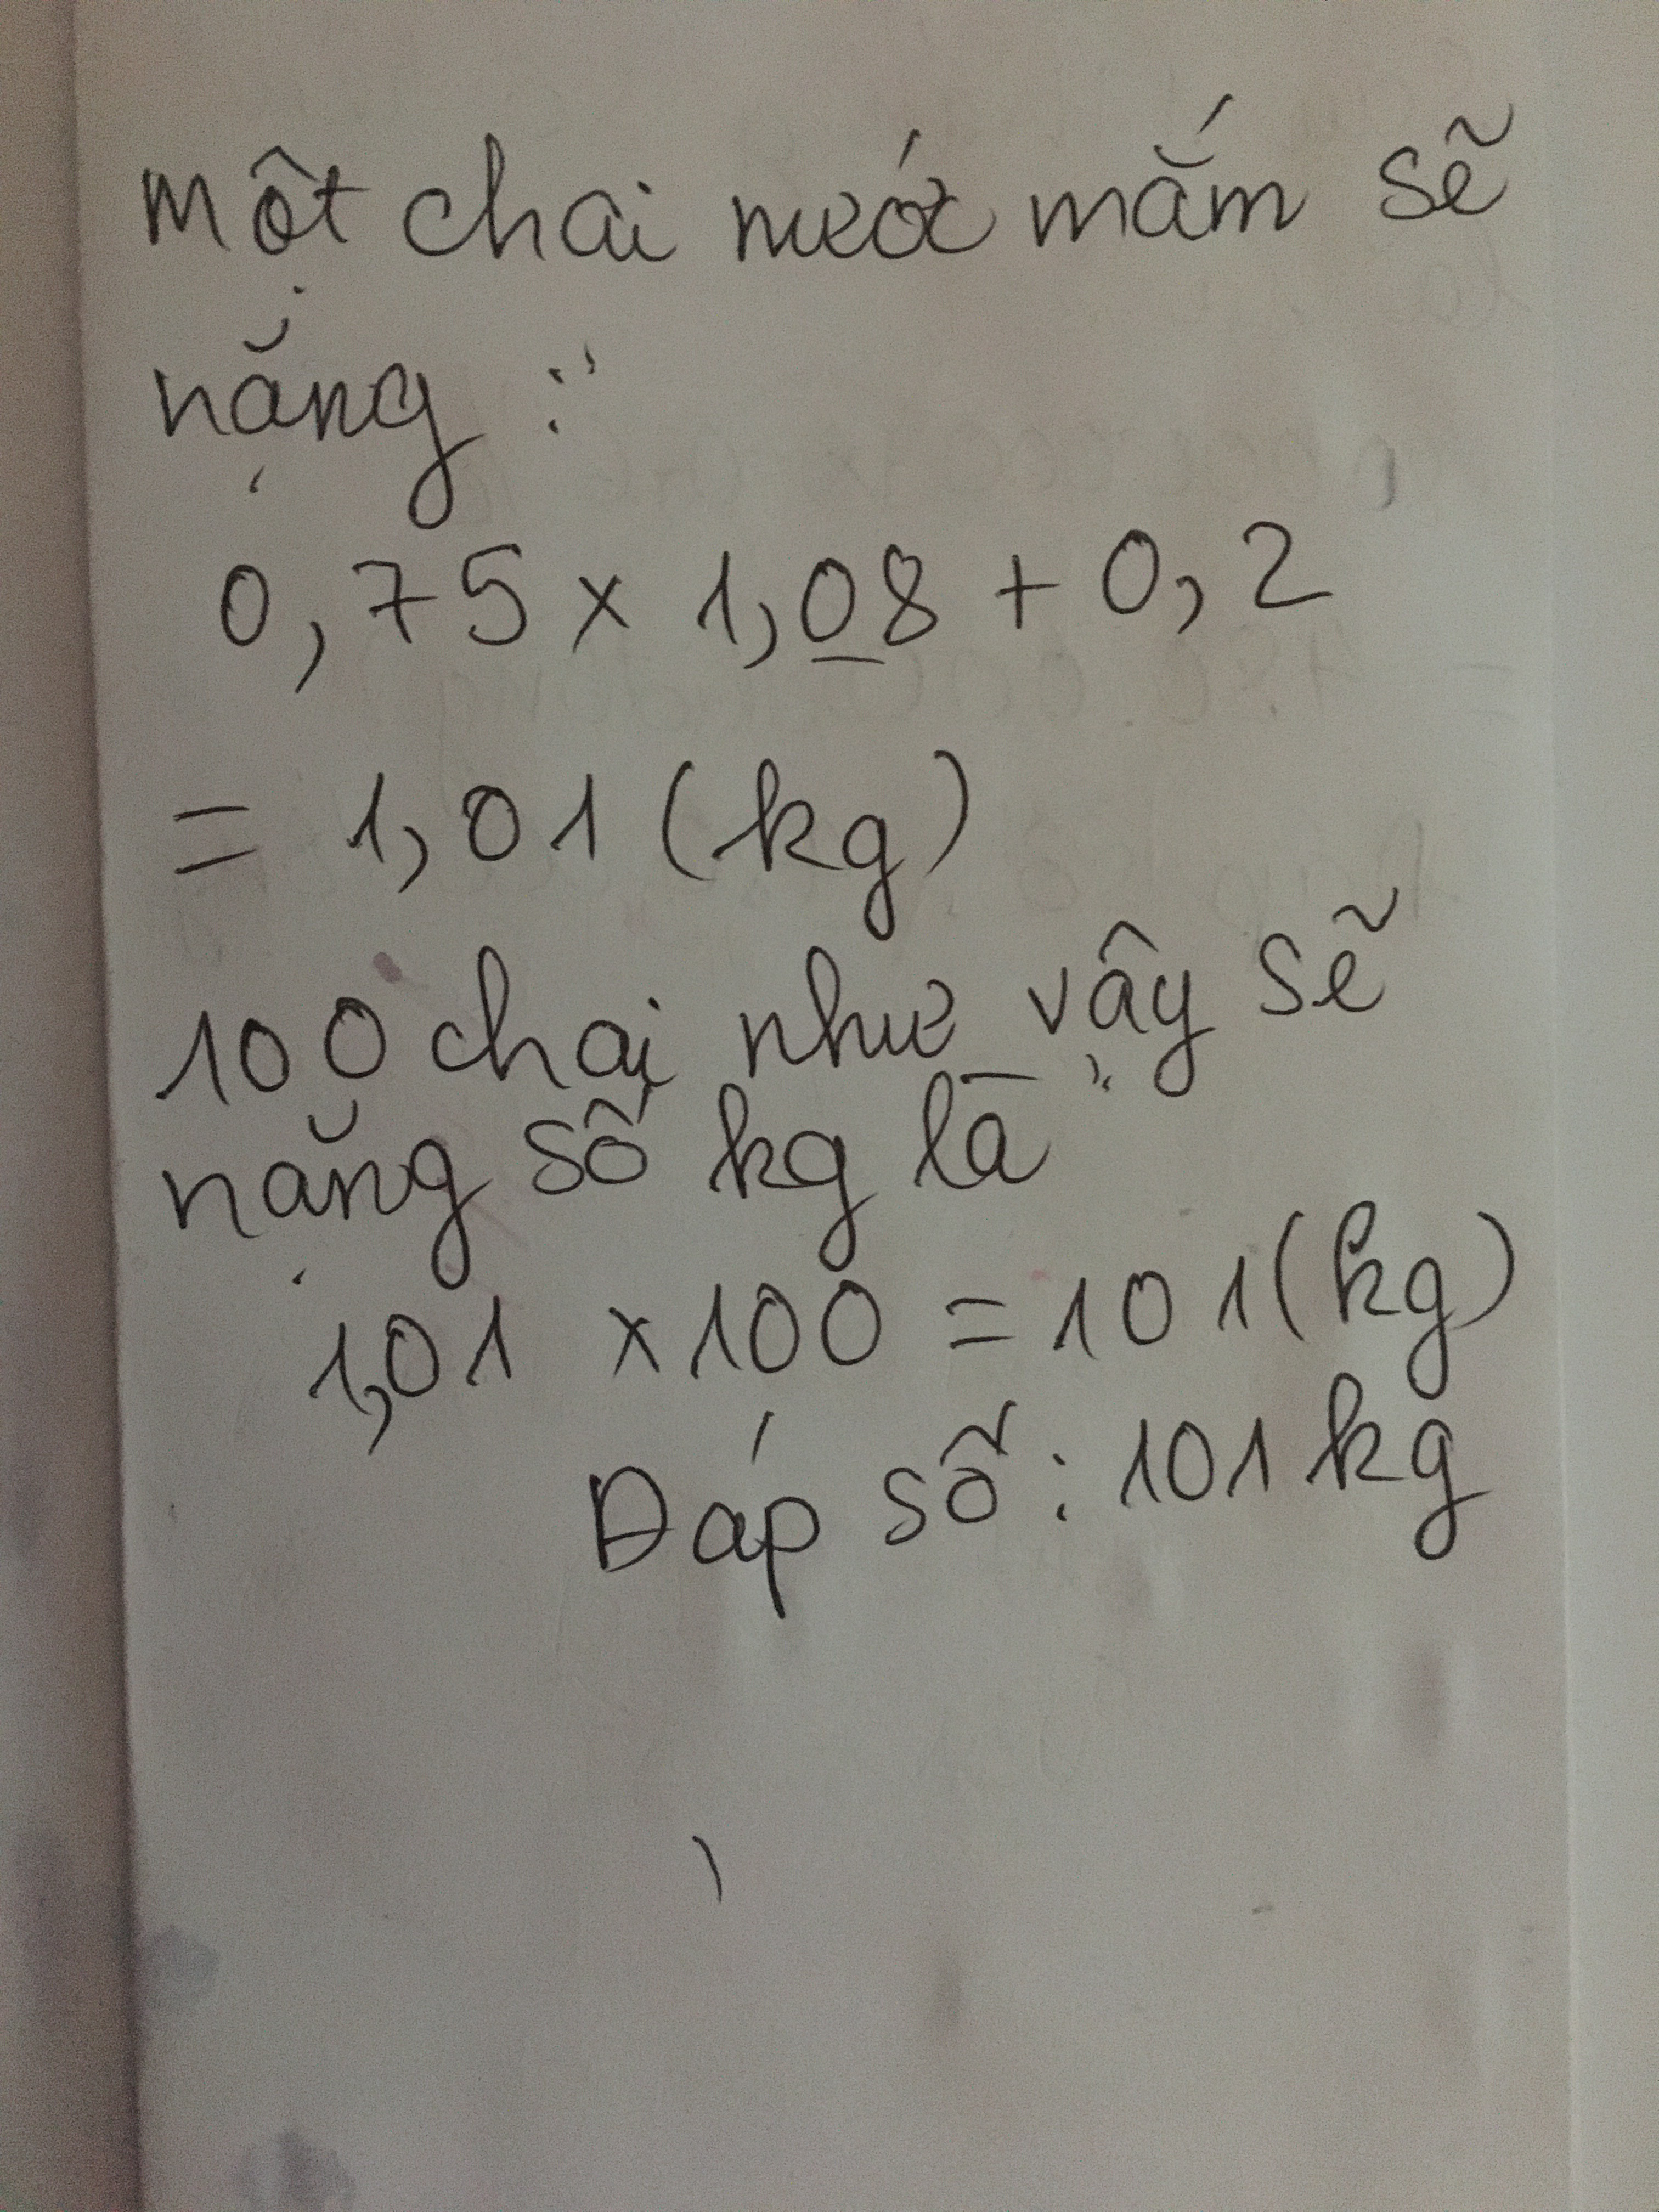 Một chai nước mắm sẽ
nặng :
0,75 x 1,08 + 0,2
= 1,01 (kg)
100 chai như vậy sẽ
nặng số kg là
1,01 x 100 = 101 (kg)
Đáp số : 101 kg